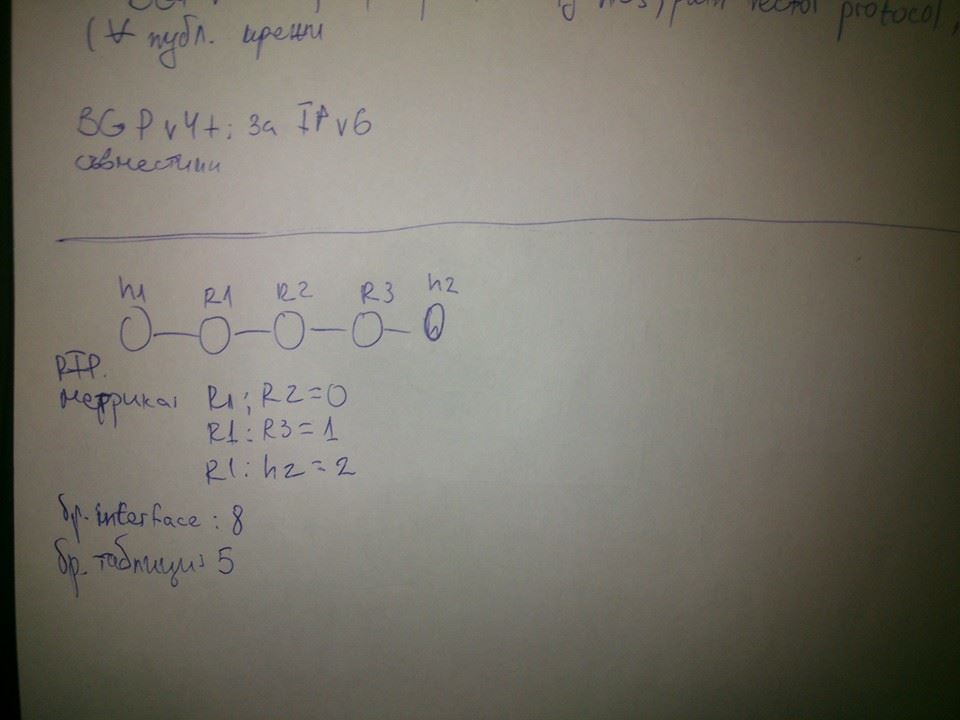 path vector protocol,
(∀ публ. мрежи
BGP v4+; за IPv6
съвместими
h1 R1 R2 R3 h2
RIP.
метрика: R1: R2=0
R1: R3=1
R1: h2=2
бр. interface: 8
бр. таблици: 5